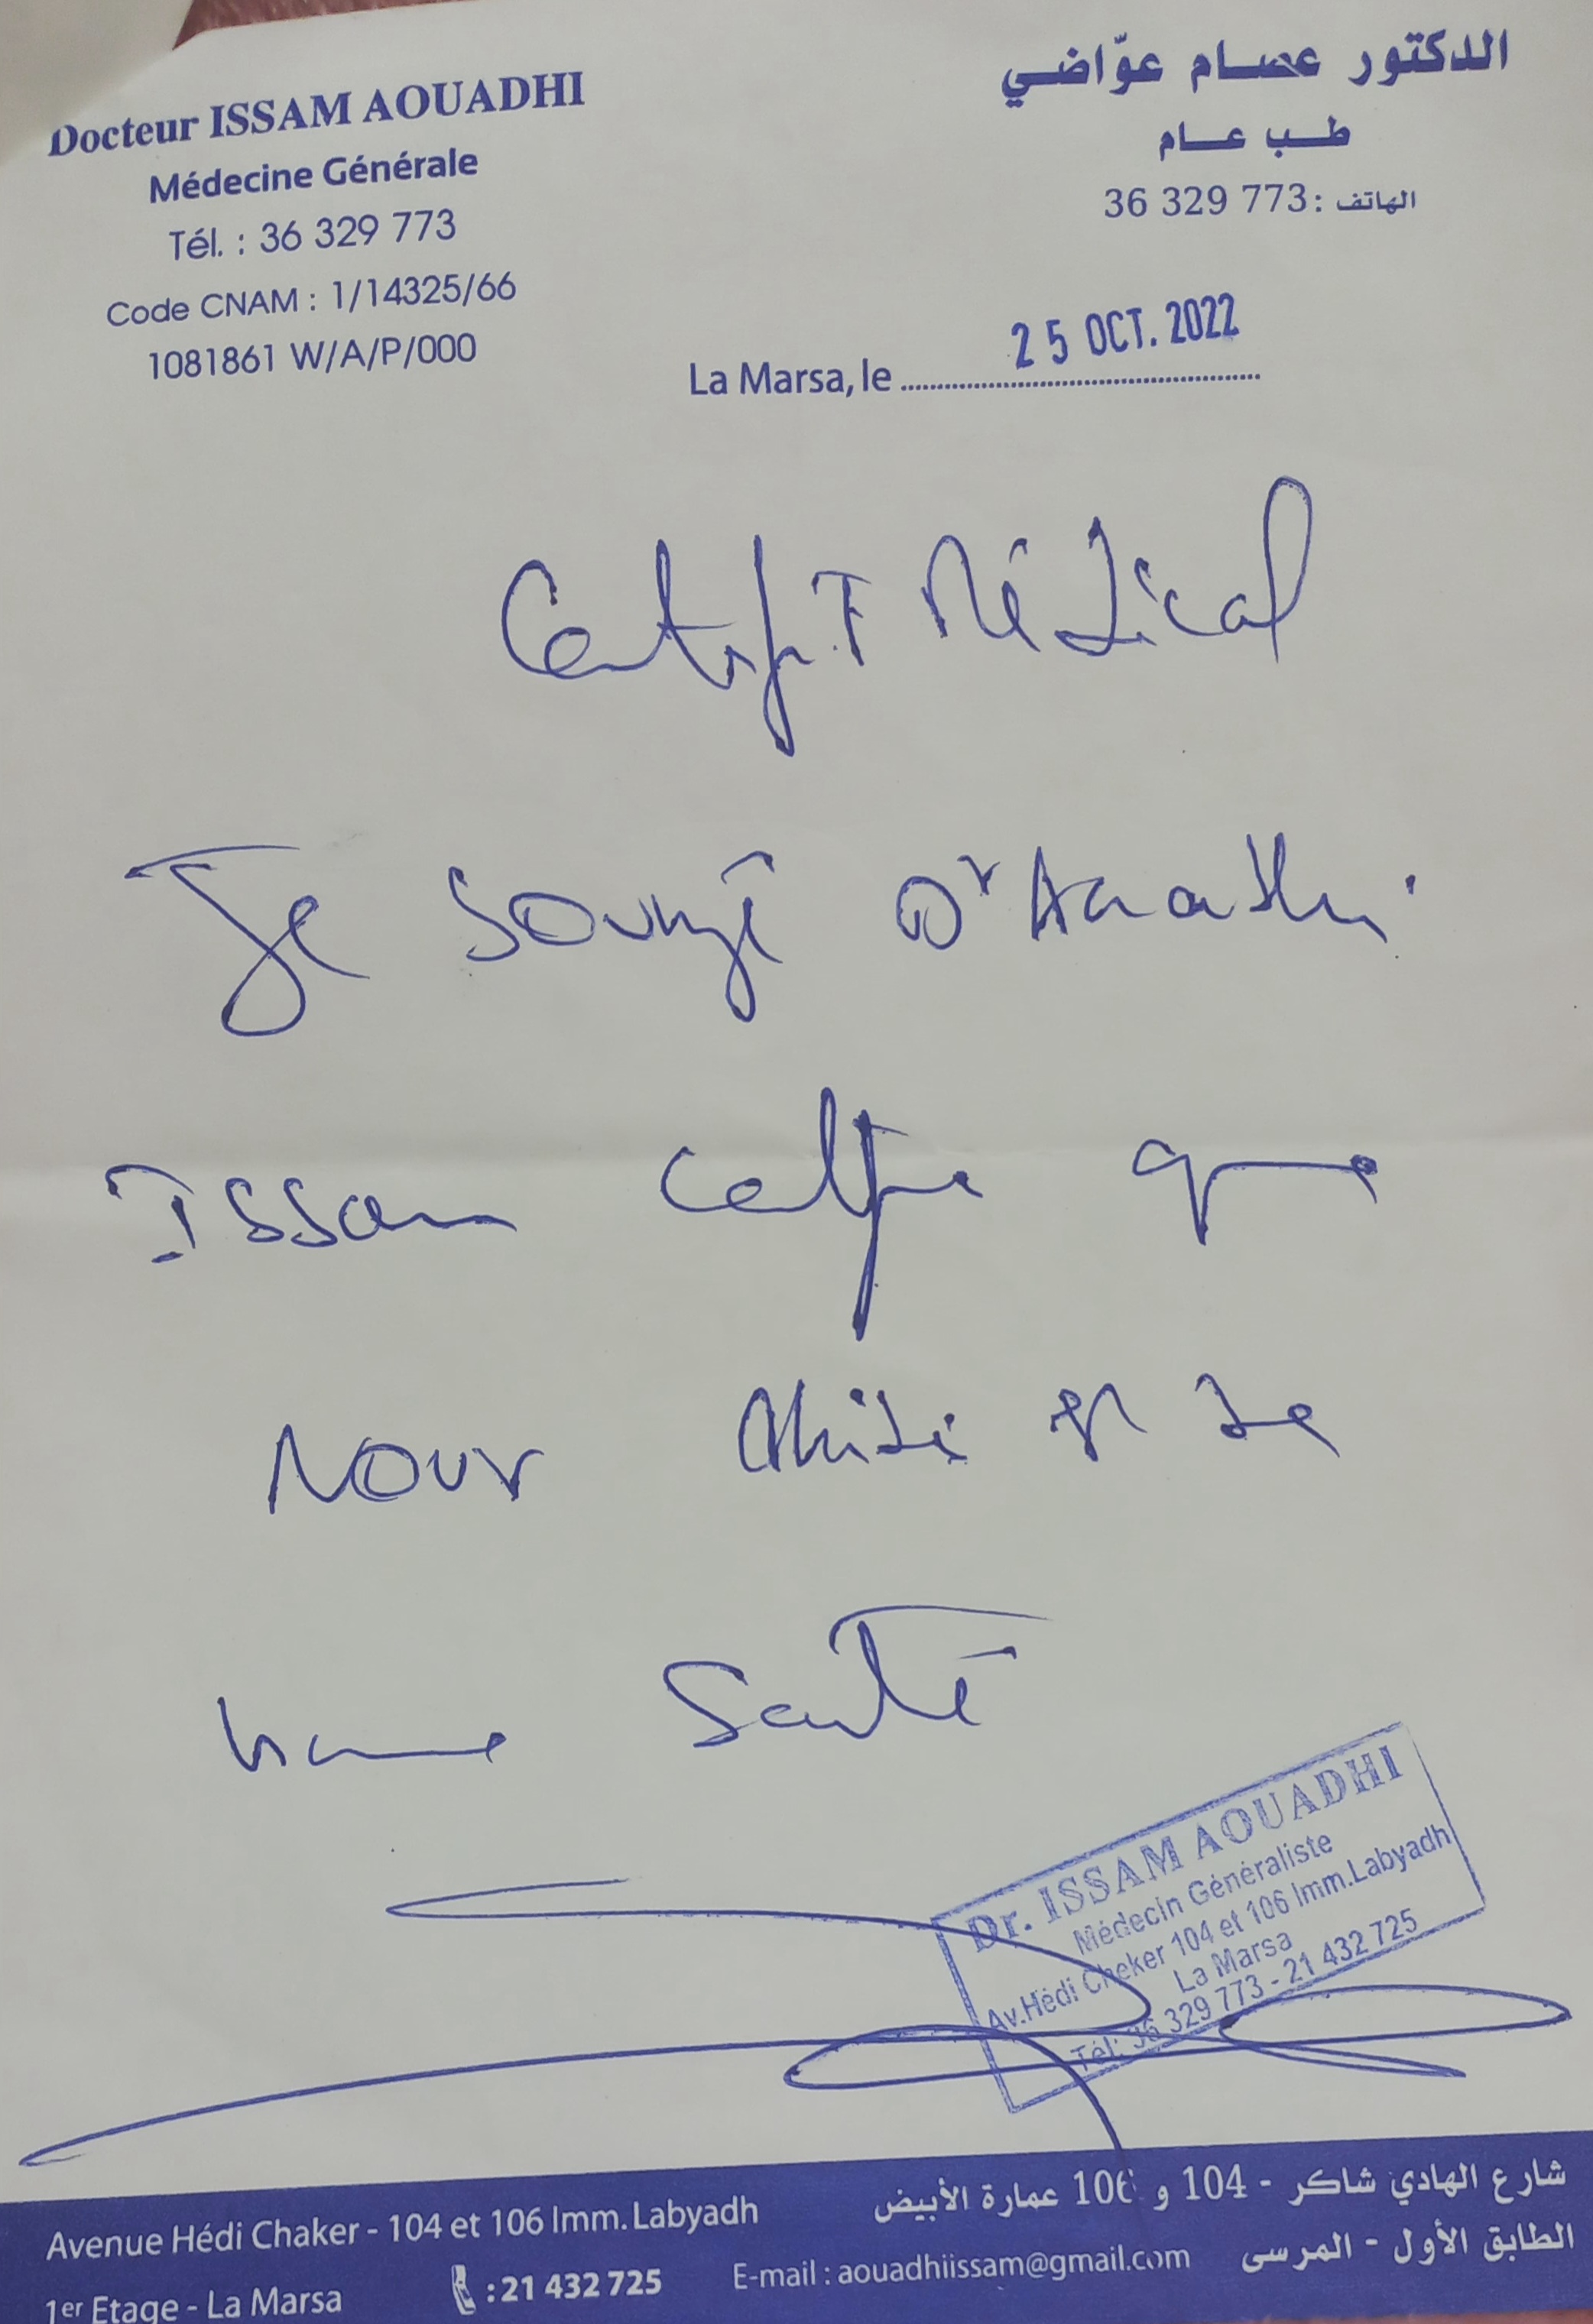 Docteur ISSAM AOUADHI
Médecine Générale
Tél. : 36 329 773
Code CNAM : 1/14325/66
1081861 W/A/P/000
الدكتور عصام عوّاضي
طب عام
الهاتف : 36 329 773
La Marsa, le 25 OCT. 2022
Certificat Médical
Je sousigné Dr Aouadhi
Issam certifie que
Nour est de
bonne Santé
Dr. ISSAM AOUADHI
Médecin Généraliste
Av.Hédi Cheker 104 et 106 Imm.Labyadh
La Marsa
Tél: 36 329 773 - 21 432 725
Avenue Hédi Chaker - 104 et 106 Imm. Labyadh
1er Etage - La Marsa
: 21 432 725
E-mail : aouadhiissam@gmail.com
شارع الهادي شاكر - 104 و 106 عمارة الأبيض
الطابق الأول - المرسى